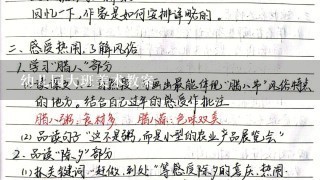 回忆一下,作家是如何安排详略的。
二、感受热闹,了解风俗
1. 学习“腊八”部分
画出最能体现“腊八节”风俗特点
的地方。结合自己过年的感受作批注
腊八粥:食材多 腊八蒜:色味双美
(2) 品读句子“这不是粥,而是小型的农业产品展览会”
2. 品读“除夕”部分
(1) 抓关键词“赶做、到处”等感受除夕的喜庆、热闹
幼儿园大班美术教案